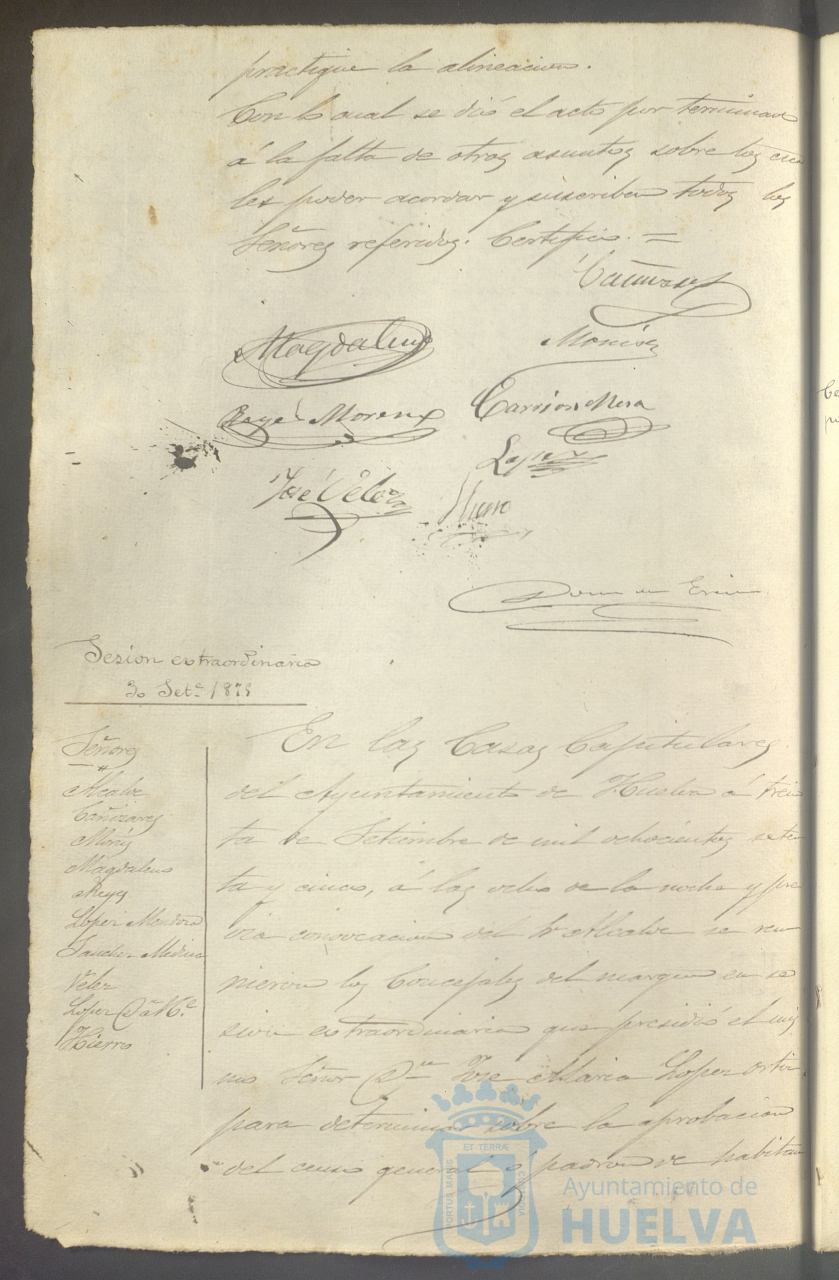 practique la alineacion.
Con lo cual se dió el acto por terminado
á la falta de otros asuntos sobre los cua
les poder acordar y suscriben todos los
Señores referidos. Certifico. =
Cañizares
Magdaleno
Reyes Moreno
Carrion Mera
Lopez
José Velez
Hierro
Sesion extraordinaria
30 Set.e 1875
Señores
Alcalde
Cañizares
Magdaleno
Reyes
López Mendoza
Sanchez Medina
Velez
Lopez
Hierro
En las Casas Capitulares
del Ayuntamiento de Huelva á trein
ta de Setiembre de mil ochocientos seten
ta y cinco, á las ocho de la noche y pre
via convocacion del Sr Alcalde se reu
nieron los Concejales del margen en se
sion extraordinaria que presidió el mis
mo Señor Dn Jose Maria Lopez Ortiz
para determinar sobre la aprobacion
del censo general ó padron de habitan
PORTUS MARIS ET TERRÆ CUSTODIA
Ayuntamiento de
HUELVA